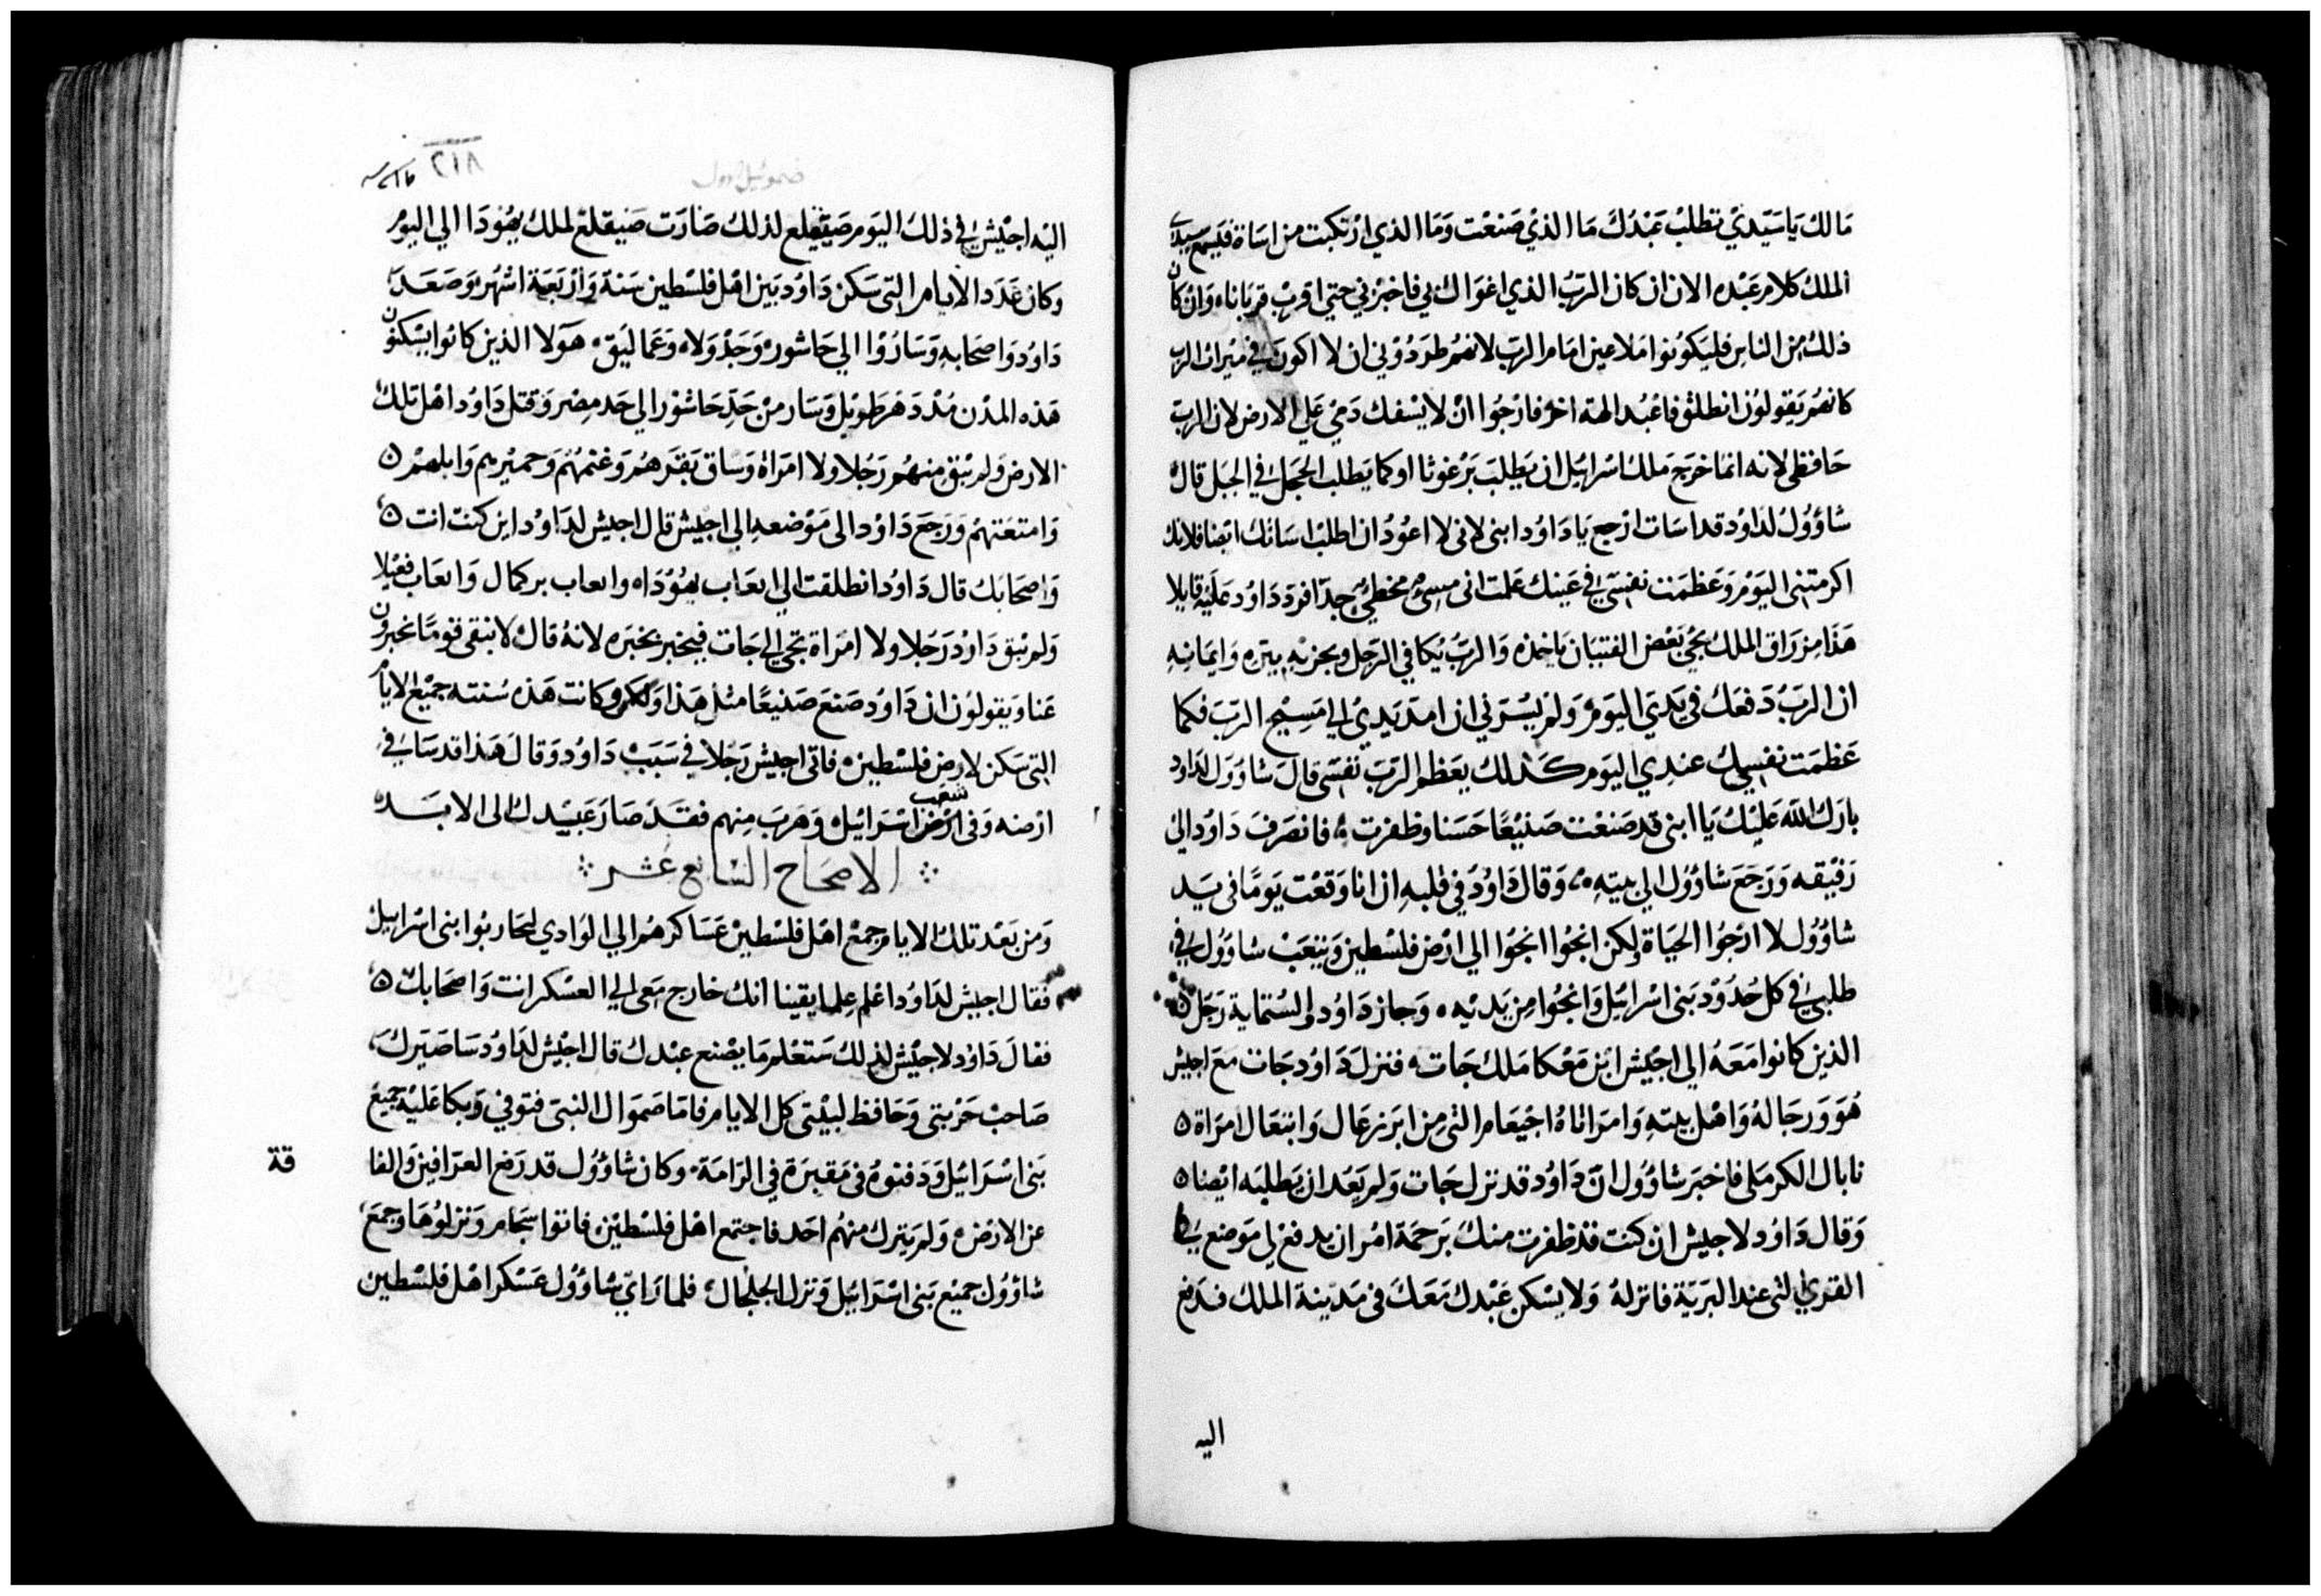 مالك ياسيدي تطلب عبدك ما الذي صنعت وما الذي ارتكبت من اساة فليسمع سيدي
الملك كلام عبده الان ان كان الرب الذي اغواك بي فاخبرني حتي اقرب قربانا، وان كان
ذلك من الناس فليكونوا ملاعين امام الرب لانهم طردوني ان لا اكون في ميراث الرب
كانهم يقولون انطلق فاعبد الهة اخر فارجوا ان لا يسفك دمي علي الارض لان الرب
حافظي لانه انما خرج ملك اسرايل ان يطلب برغوثا او كما يطلب الحجل في الجبل قال
شاوول لداود قد اسات ارجع يا داود ابني لاني لا اعود ان اطلب اساتك ايضا فلانك
اكرمتني اليوم وعظمت نفسي في عينك علمت اني مسئ مخطئ جدا فرد داود عليه قايلا
هذا مزراق الملك يجي بعض الفتيان ياخذه والرب يكافي الرجل ويجزيه ببره وايمانه
ان الرب دفعك في يدي اليوم ولم يسرني ان امد يدي الي مسيح الرب فكما
عظمت نفسك عندي اليوم كذلك يعظم الرب نفسي قال شاوول لداود
بارك الله عليك يا ابني قد صنعت صنيعا حسنا وظفرت ، فانصرف داود الي
رفيقه ورجع شاوول الي بيته ، وقال داود في قلبه ان انا وقعت يوما في يد
شاوول لا ارجوا الحياة ولكن انجوا انجوا الي ارض فلسطين ويتعب شاوول في
طلبي في كل حدود بني اسرائيل وانجوا من يديه ، وجاز داود والستماية رجل
الذين كانوا معه الي اجيش ابن معكا ملك جات ، فنزل داود جات مع اجيش
هو ورجاله واهل بيته وامراتاه اجيعام التي من ابزرعال وابنغال امراة
نابال الكرملي فاخبر شاوول ان داود قد نزل جات ولم يعد ان يطلبه ايضا
وقال داود لاجيش ان كنت قد ظفرت منك برحمة امر ان يدفع لي موضع في
القري التي عند البرية فانزله ولا يسكن عبدك معك في مدينة الملك فدفع
اليه
٢١٨
صموئيل اول
اليه اجيش في ذلك اليوم صيقلع لذلك صارت صيقلع لملك يهودا الي اليوم
وكان عدد الايام التي سكن داود بين اهل فلسطين سنة واربعة اشهر، وصعد
داود واصحابه وساروا الي حاشور، وجدولاه وعماليق ، هولا الذين كانوا يسكنون
هذه المدن مذ دهر طويل وسار من حد حاشور الي حد مصر وقتل داود اهل تلك
الارض ولم يبق منهم رجلا ولا امراة وساق بقرهم وغنمهم وحميرهم وابلهم
وامتعتهم ورجع داود الى موضعه الي اجيش قال اجيش لداود اين كنت انت
واصحابك قال داود انطلقت الي ايعاب يهوداه وايعاب بركمال وايعاب فغيلا
ولم يبق داود رجلا ولا امراة تجي الي جات فيخبر بخبره لانه قال لا نبقي قوما يخبرون
عنا ويقولون ان داود صنع صنيعا مثل هذا ولكن وكانت هذه سنته جميع الايام
التي سكن لارض فلسطين ، فاتي اجيش رجلا في سبب داود وقال هذا قد سا في
ارضه وفي ارض شعب اسرائيل وهرب منهم فقد صار عبيدك الى الابد
الاصحاح السابع عشر
ومن بعد تلك الايام جمع اهل فلسطين عساكرهم الي الوادي ليحاربوا بني اسرايل
فقال اجيش لداود اعلم علما يقينا انك خارج معي الي العسكر انت واصحابك
فقال داود لاجيش لذلك ستعلم ما يصنع عبدك قال اجيش لداود ساصيرك
صاحب حربتي وحافظ لبيتي كل الايام فاما صموال النبي فتوفي وبكا عليه جميع
بني اسرائيل ودفنوه في مقبرة في الرامة ، وكان شاوول قد رفع العرافين والفا
قة
عن الارض ، ولم يترك منهم احد فاجتمع اهل فلسطين ، فاتوا سجام ونزلوها وجمع
شاوول جميع بني اسرائيل ونزل الجلجال ، فلما راي شاوول عسكر اهل فلسطين